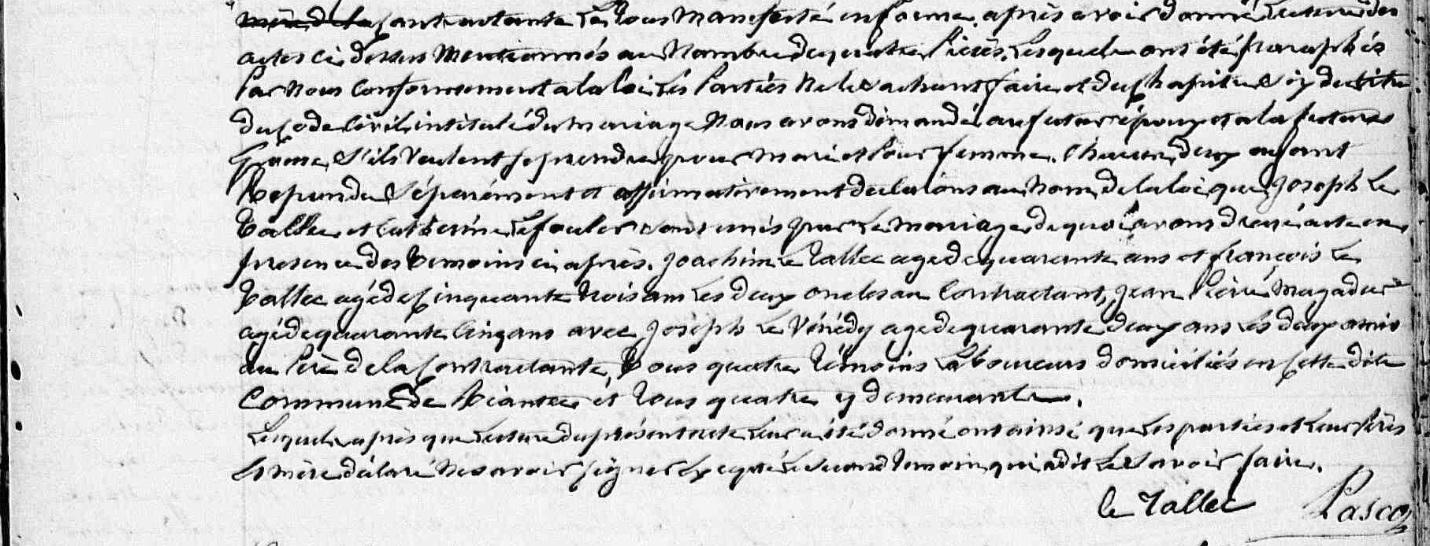 mère de la contractante ce tous manifesté en forme. après avoir donné lecture des
actes ci dessus mentionnés au Nombre de quatre pièces, Lesquels ont été paraphés
Par nous Conformement a la loi Les Parties ne le sachant faire et du Chapitre du titre
du Code Civil intitulé du mariage Nous avons demandé au futur époux et a la future
femme S'ils veulent se prendre pour mari et Pour femme. Chacun deux ayant
Repondu Séparément et affirmativement declarons au Nom de la loi que Joseph Le
Tallec et Catherine Le fouler sont unis par Le mariage de quoi avons dressé acte en
presence des temoins ci après. Joachim Le Tallec agé de quarante ans et francois Le
Tallec agé de Cinquante trois ans Les deux oncles au Contractant, Jean Pierre Magadur
agé de quarante Cinq ans avec Joseph Le Vénédy agé de quarante deux ans Les deux amis
au Père de la Contractante, Tous quatre Témoins Laboureurs domiciliés en Cette dite
Commune de et Tous quatre y demeurants.
Lesquels après que Lecture du présent acte Leur a été donné ont ainsi que Les parties et Leur Pères
et mère déclaré Ne savoir signer excepté Le Second temoin qui a dit Le Savoir faire.
le Tallec Pasco